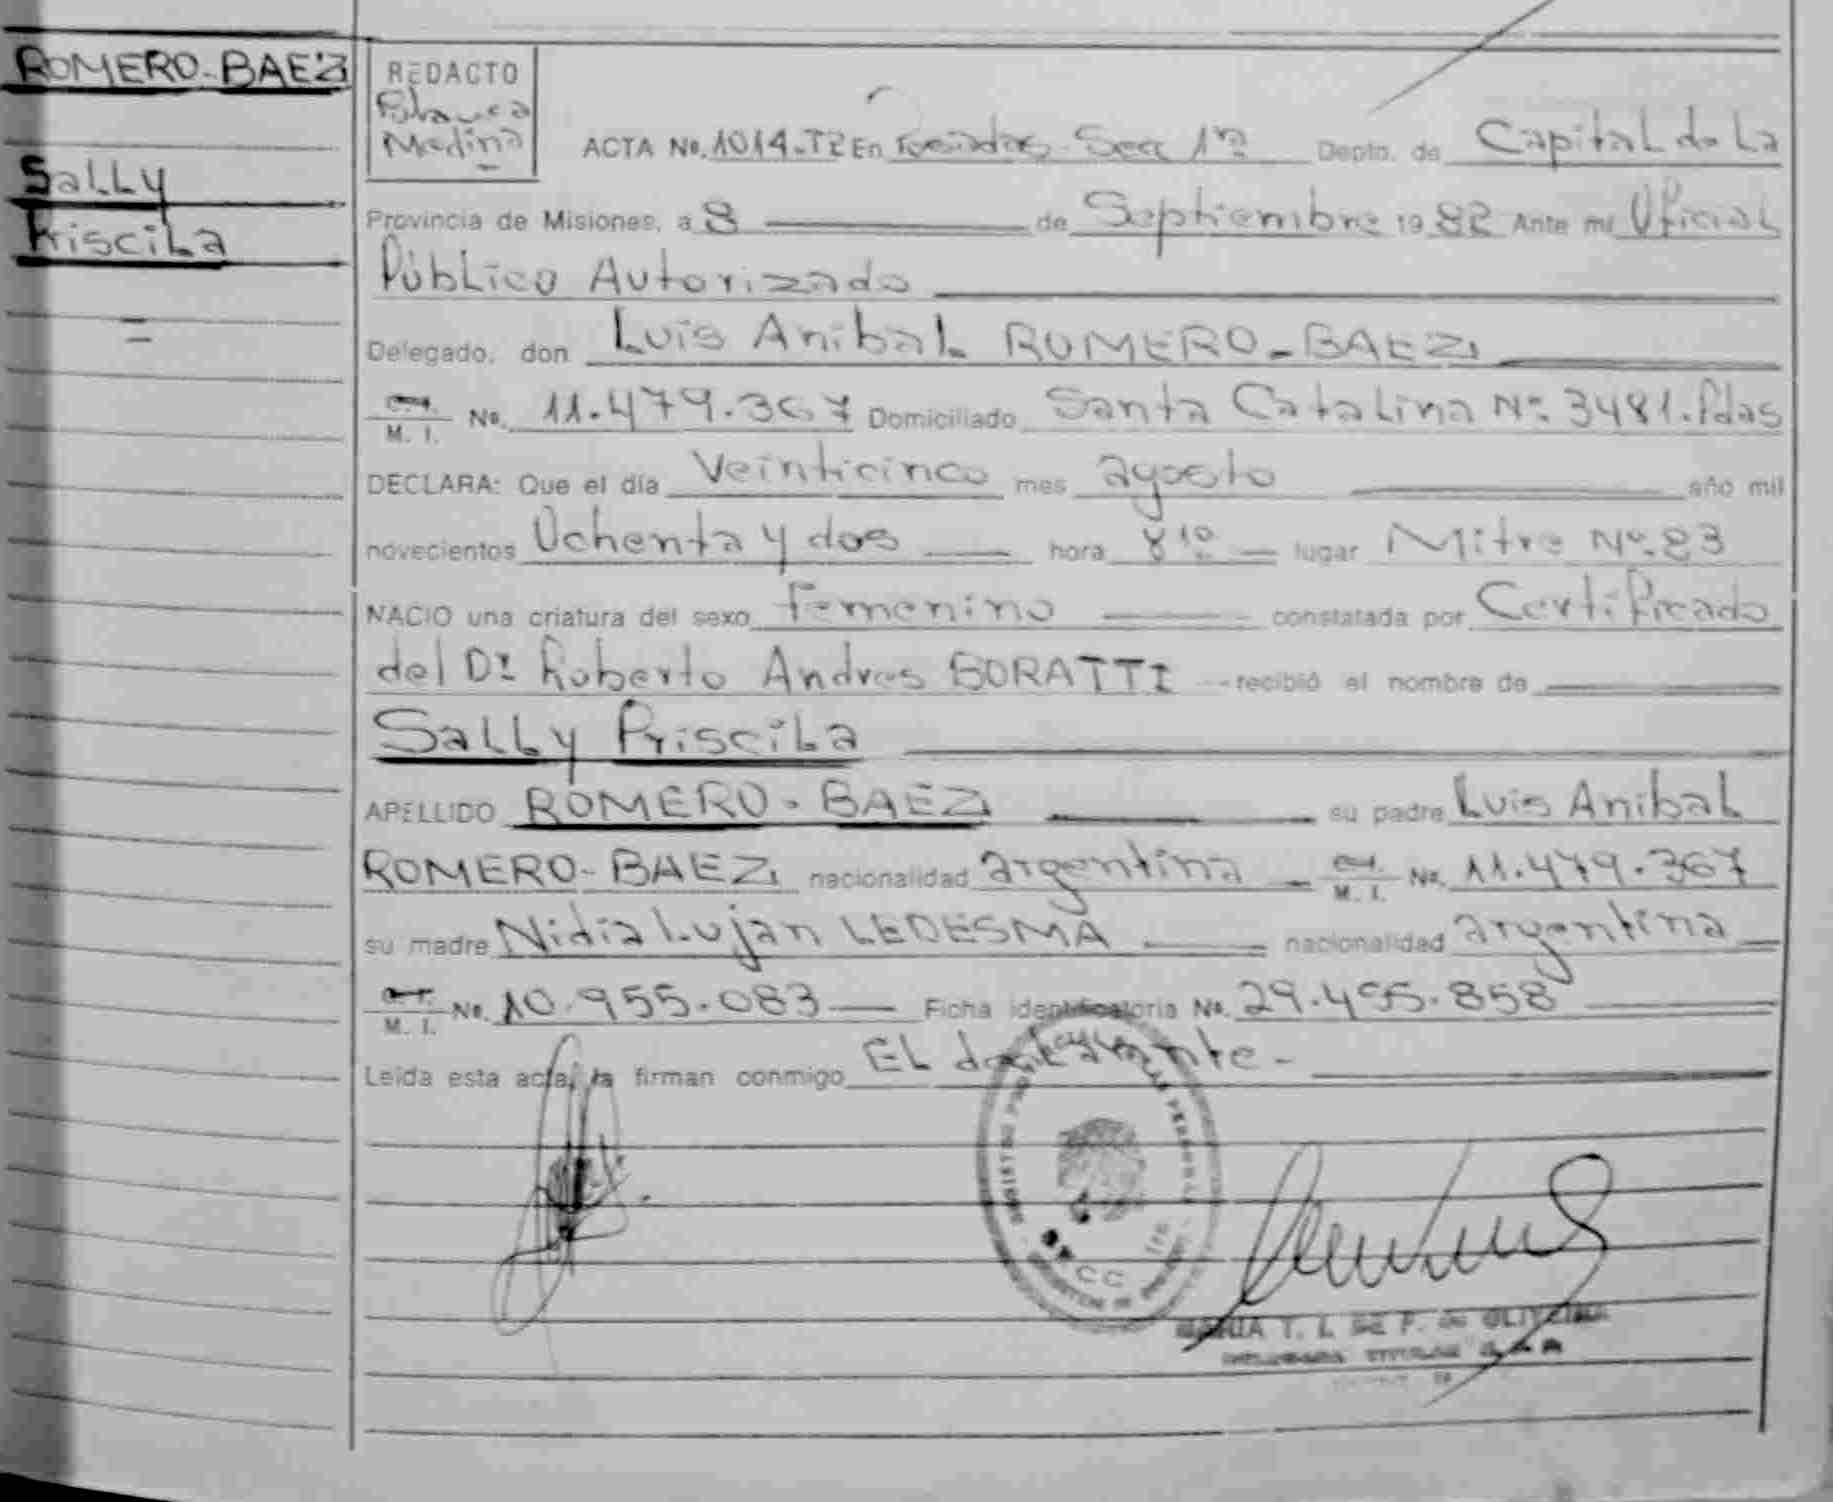 ROMERO-BAEZ
Sally
Priscila
REDACTO
Blanca
Medina
ACTA No. 1014-T2 En Posadas Sec 1ra Depto. de Capital de La
Provincia de Misiones, a 8 de Septiembre 1982 Ante mi Oficial
Público Autorizado
Delegado, don Luis Anibal ROMERO-BAEZ
M. I. No. 11.479.367 Domiciliado Santa Catalina Nº 3481. Pdas
DECLARA: Que el día Veinticinco mes agosto año mil
novecientos Ochenta y dos hora 8 10 lugar Mitre Nº 83
NACIO una criatura del sexo femenino constatada por Certificado
del Dr Roberto Andres BORATTI recibió el nombre de
Sally Priscila
APELLIDO ROMERO-BAEZ su padre Luis Anibal
ROMERO-BAEZ nacionalidad argentina M. I. No. 11.479.367
su madre Nidia Lujan LEDESMA nacionalidad argentina
M. I. No. 10.955.083 Ficha identificatoria No. 29.455.858
Leída esta acta, la firman conmigo EL declarante-
MARIA T. L. DE F. DE OLIVEIRA